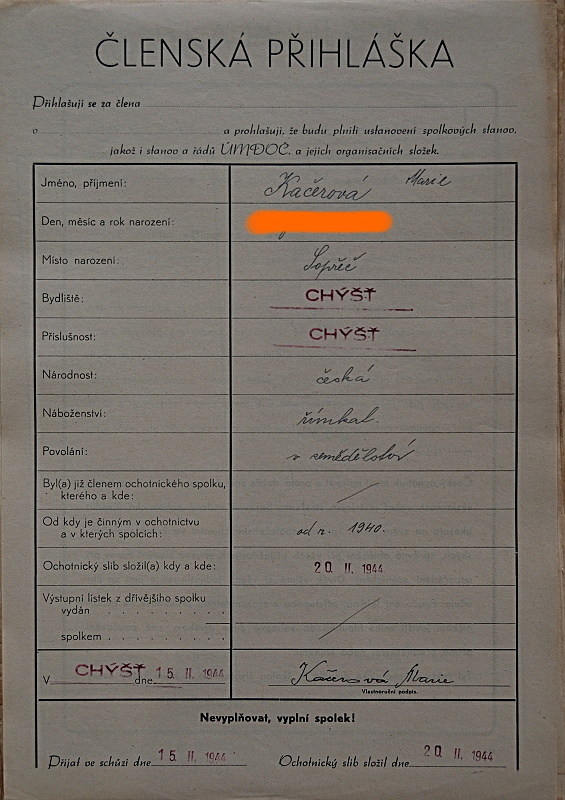 ČLENSKÁ PŘIHLÁŠKA
Přihlašuji se za člena
v a prohlašuji, že budu plniti ustanovení spolkových stanov,
jakož i stanov a řádů ÚMDOČ. a jejich organisačních složek.
Jméno, příjmení: Kačerová Marie
Den, měsíc a rok narození:
Místo narození: Sopřeč
Bydliště: CHÝŠŤ
Příslušnost: CHÝŠŤ
Národnost: česká
Náboženství: římkat.
Povolání: v zemědělství
Byl(a) již členem ochotnického spolku,
kterého a kde: /
Od kdy je činným v ochotnictvu
a v kterých spolcích: od r. 1940.
Ochotnický slib složil(a) kdy a kde: 20 II. 1944
Výstupní lístek z dřívějšího spolku
vydán . . . . . . . .
spolkem . . . . . . . . /
V CHÝŠŤ dne 15 II. 1944 Kačerová Marie
Vlastnoruční podpis.
Nevyplňovat, vyplní spolek!
Přijat ve schůzi dne 15 II. 1944 Ochotnický slib složil dne 20 II. 1944